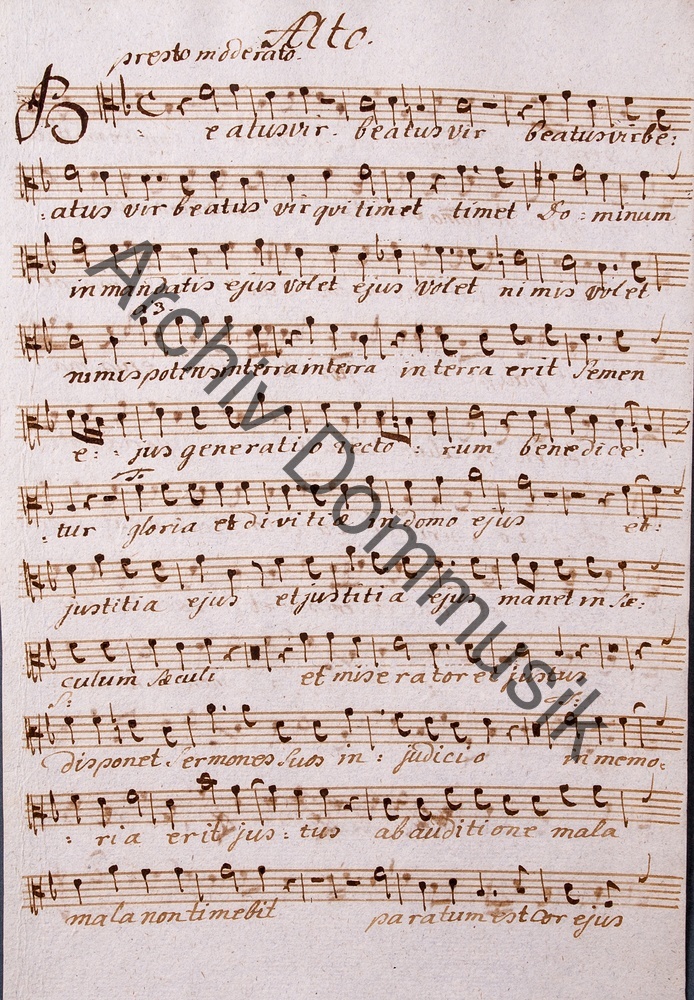 Alto.
presto moderato.
Beatus vir. beatus vir beatus vir be:
:atus vir beatus vir qui timet timet Do: minum
in mandatis ejus volet ejus volet nimis volet
nimis potens in terra in terra in terra erit Semen
e: - jus generatio recto: rum benedice:
:tur gloria et divitiæ in domo ejus et:
justitia ejus et justitia ejus manet in Sæ:
culum Sæculi et miserator et justus
disponet Sermones Suos in: judicio in memo:
: ria erit jus: tus ab auditione mala
mala non timebit paratum est Cor ejus
Archiv Dommusik